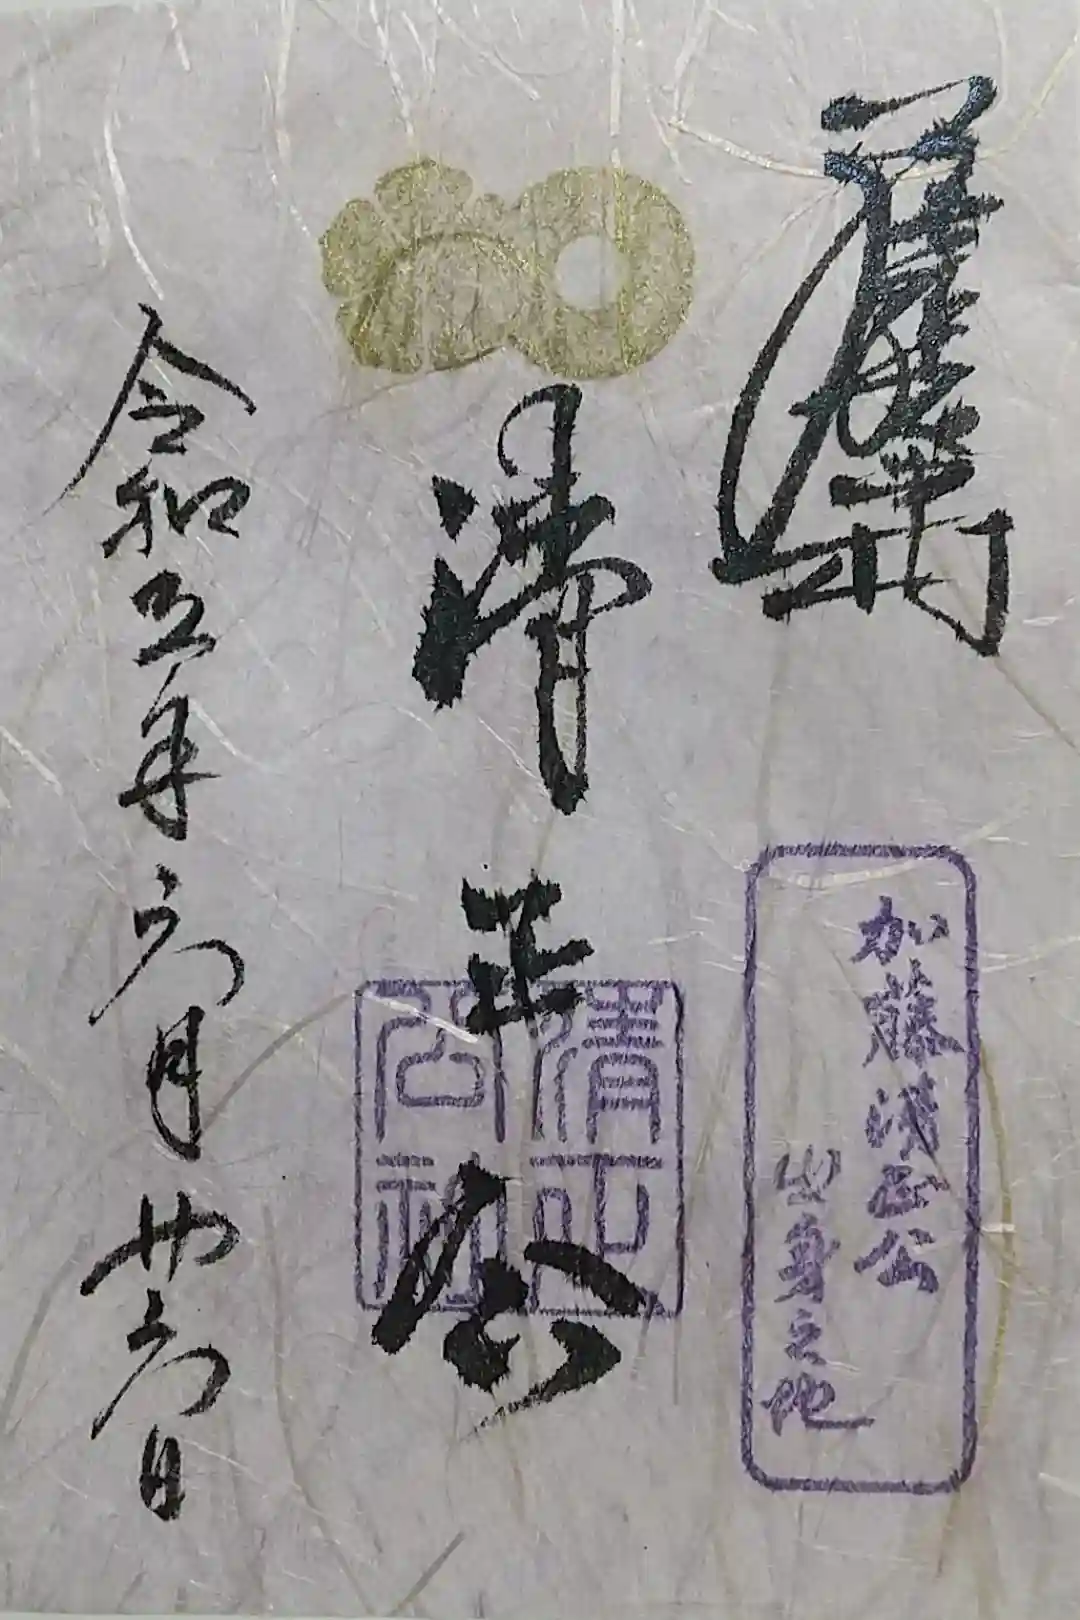 加藤清正公
出身之地
清正公
清正公社
令和五年六月廿六日